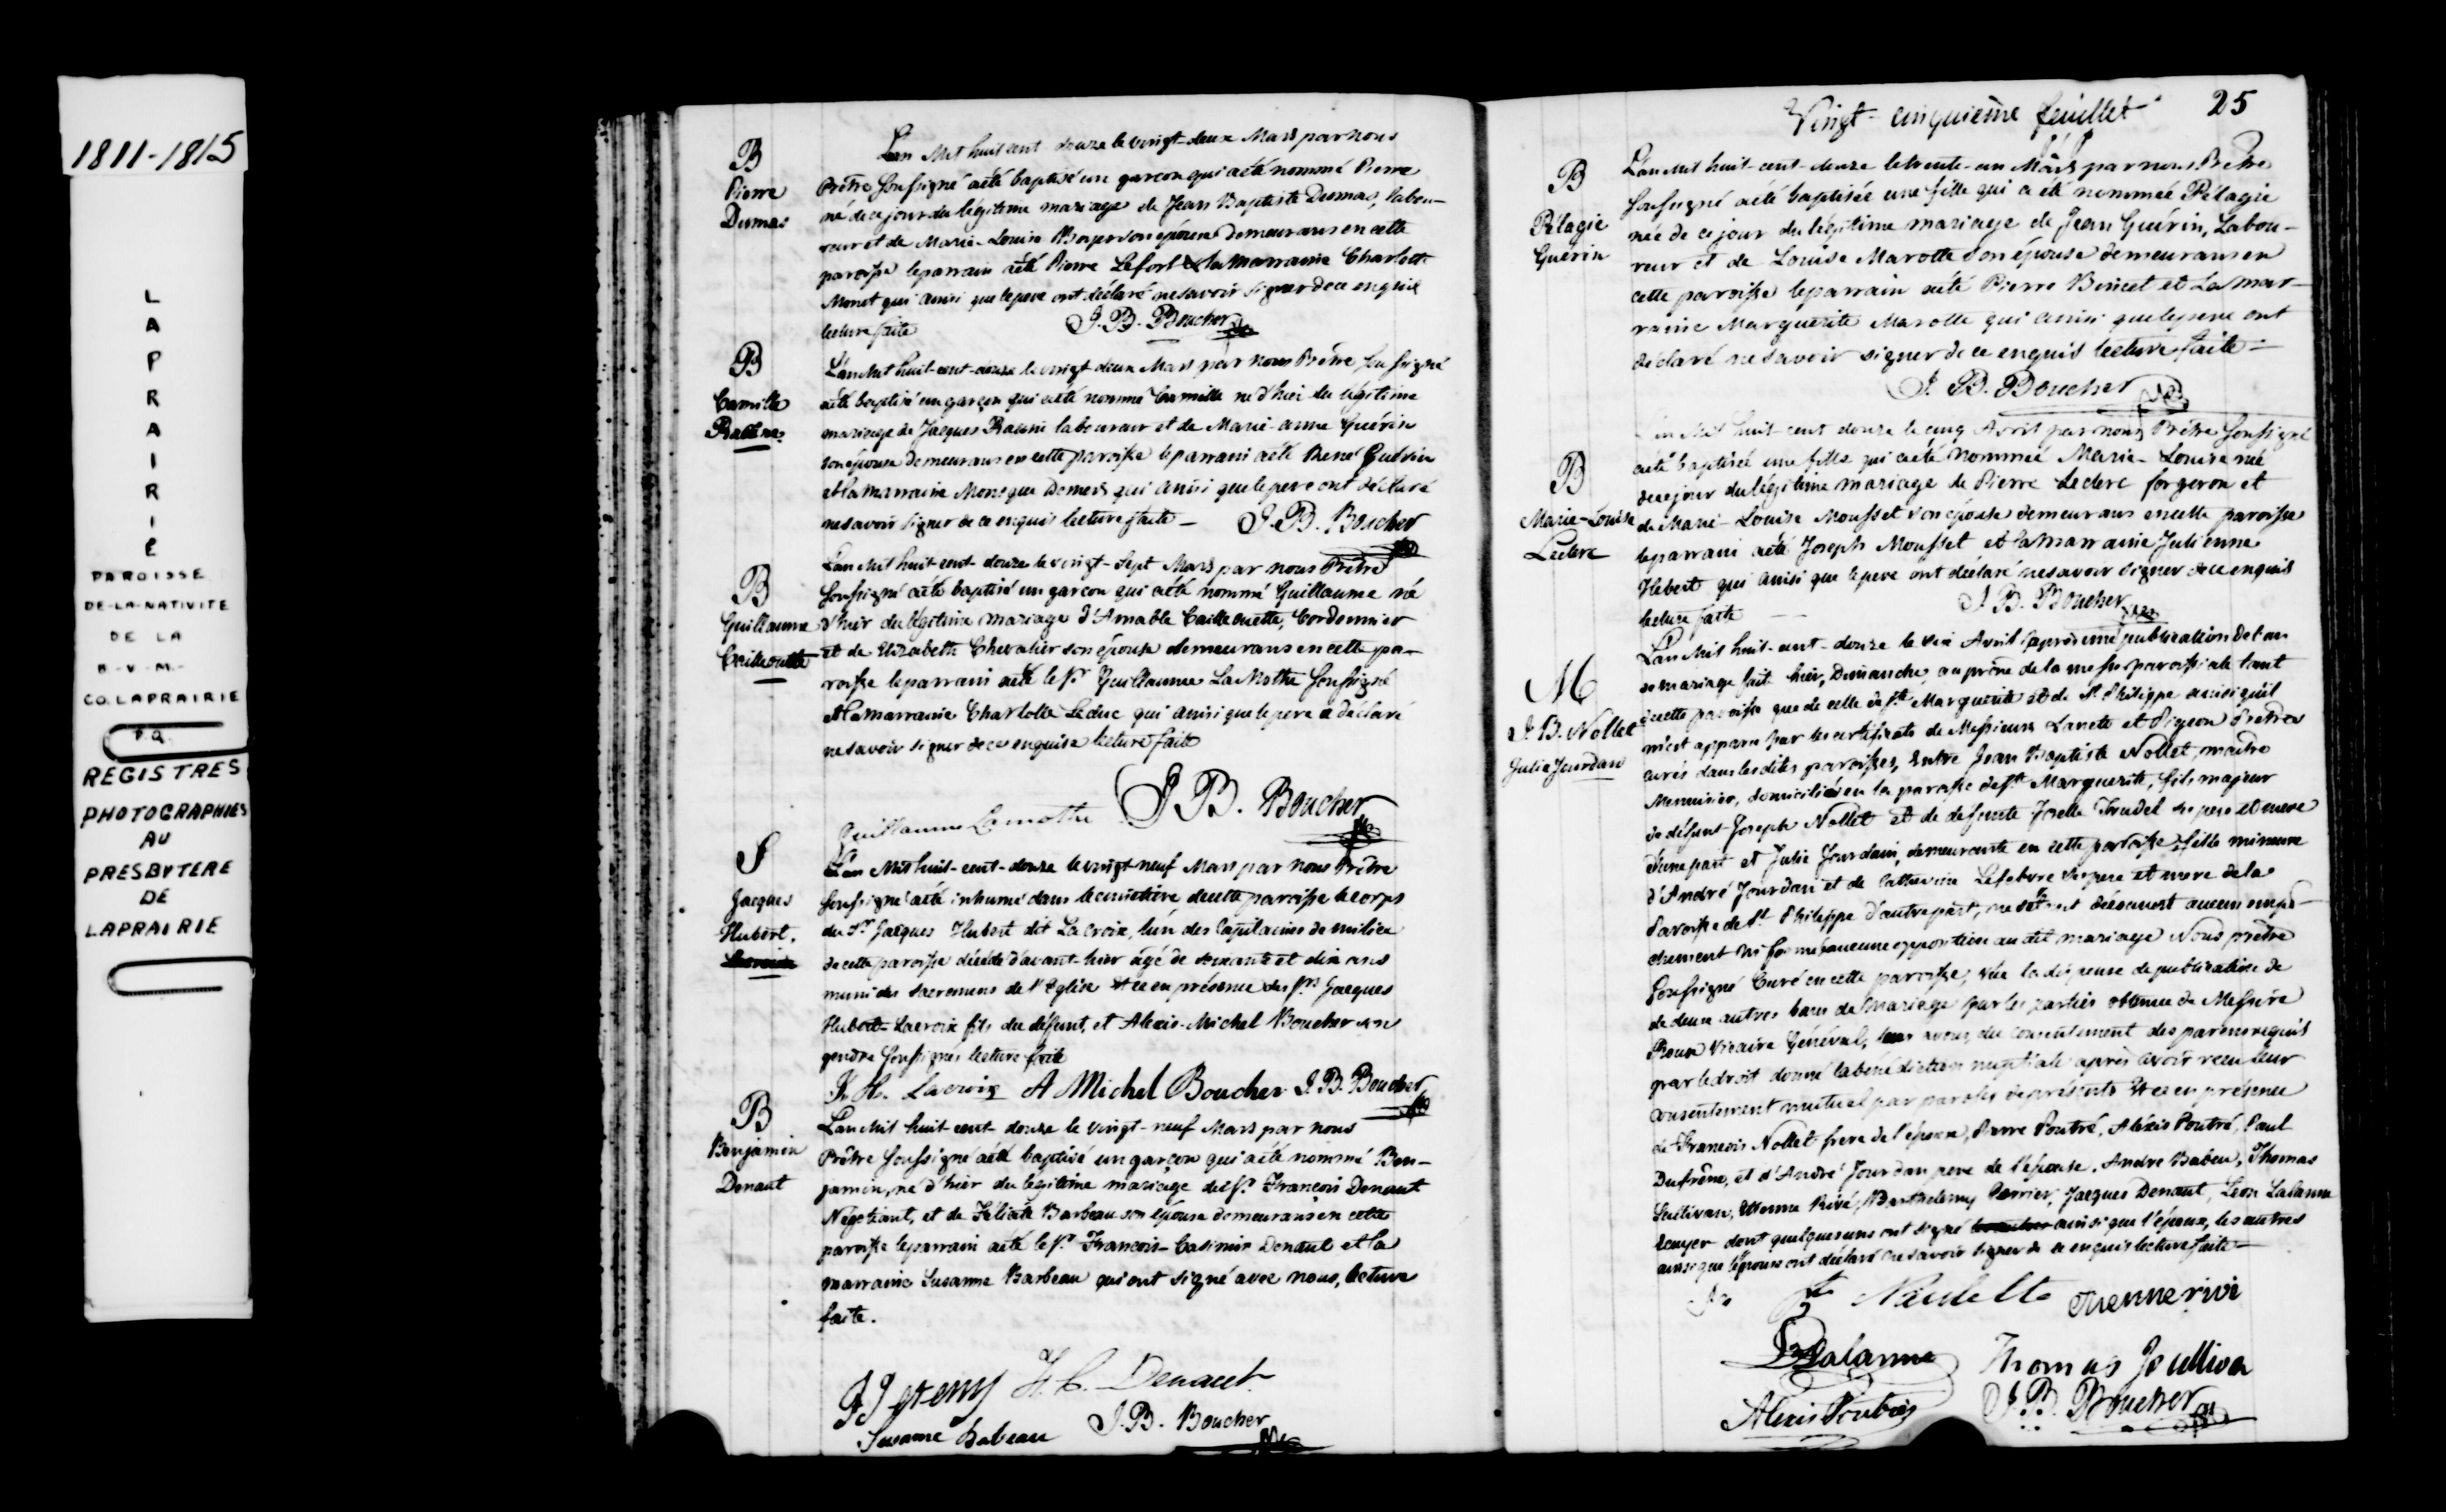 1811-1815
LAPRAIRIE
PAROISSE
DE-LA-NATIVITE
DE LA
B-V-M-
CO. LAPRAIRIE
P.Q.
REGISTRES
PHOTOGRAPHIES
AU
PRESBYTERE
DE
LAPRAIRIE
B
Pierre
Dumas
L'an Mil huit cent douze le vingt-deux Mars par nous
Prêtre soussigné a été baptisé un garcon qui a été nommé Pierre
né de ce jour du légitime mariage de Jean Baptiste Dumas, labou-
reur et de Marie-Louise Boyer son épouse demeurans en cette
paroisse le parrain a été Pierre Lefort & la Marraine Charlotte
Monet qui ainsi que le pere ont déclaré ne savoir signer de ce enquis
lecture faite
J. B. Boucher
B
Camille
L'an Mil huit-cent-douze le vingt deux Mars par nous Prêtre soussigné
a été baptisé un garçon qui a été nommé Camille né d'hier du légitime
mariage de Jacques laboureur et de Marie-anne Guérin
son épouse demeurans en cette paroisse le parrain a été René
et la marraine Monique Demers qui ainsi que le pere ont déclaré
ne savoir signer de ce enquis lecture faite - J. B. Boucher
B
Guillaume
Cailloutte
L'an Mil huit-cent-douze le vingt-sept Mars par nous Prêtre
soussigné a été baptisé un garcon qui a été nommé Guillaume né
d'hier du légitime mariage d'Amable Caillouette, Cordonnier
et de Elizabeth Chevalier son épouse demeurans en cette pa-
roisse le parrain a été le Sr Guillaume La Mothe soussigné
et la marraine Charlotte Leduc qui ainsi que le pere a déclaré
ne savoir signer de ce enquise lecture faite
Guillaume Lamothe J. B. Boucher
S
Jacques
Hubert.
Lacroix
L'an Mil huit-cent-douze le vingt-neuf Mars par nous Prêtre
soussigné a été inhumé dans le cimetière de cette paroisse le corps
du Sr Jacques Hubert dit La Croix, l'un des Capitaines de milice
de cette paroisse décédé d'avant-hier âgé de soixante et dix ans
muni des Sacremens de l'Eglise et ce en présence des Srs Jacques
Hubert-Lacroix fils du défunt, et Alexis-Michel Boucher son
gendre soussignés lecture faite
J. H. Lacroix A Michel Boucher J. B. Boucher
B
Benjamin
Denaut
L'an Mil huit-cent-douze le vingt-neuf Mars par nous
Prêtre soussigné a été baptisé un garçon qui a été nommé Ben-
jamin, né d'hier du légitime mariage du Sr François Denaut
Négotiant, et de Félicité Barbeau son épouse demeurans en cette
paroisse le parrain a été le Sr François-Casimir Denaut et la
marraine Susanne Barbeau qui ont signé avec nous, lecture
faite.
F. C. Denaut
Susanne Babeau J. B. Boucher
Vingt-cinquième feuillet 25
B
Pélagie
Guérin
L'an Mil huit-cent-douze le trente-un Mars par nous Prêtre
soussigné a été baptisée une fille qui a été nommée Pélagie
née de ce jour du légitime mariage de Jean Guérin, Labou-
reur et de Louise Marotte son épouse demeurans en
cette paroisse le parrain a été Pierre et La mar-
raine Marguerite Marotte qui ainsi que le pere ont
déclaré ne savoir signer de ce enquis lecture faite -
J. B. Boucher
B
Marie-Louise
Leclerc
L'an Mil huit-cent douze le cinq Avril par nous Prêtre soussigné
a été baptisée une fille qui a été nommée Marie-Louise née
de ce jour du légitime mariage de Pierre Leclerc forgeron et
de Marie-Louise Mousset son épouse demeurans en cette paroisse
le parrain a été Joseph Mousset et la marraine Julienne
Hebert qui ainsi que le pere ont déclaré ne savoir signer de ce enquis
lecture faite
J. B. Boucher
M
J. B. Nollet
Julie Jourdan
L'an Mil huit-cent-douze le six Avril après une publication de ban
de mariage faite hier, Dimanche, au prône de la messe paroissiale tant
de cette paroisse que de celle de Ste Marguerite et de St Philippe ainsi qu'il
m'est apparu par les certificats de Messieurs et Pigeon Prêtres
curés dans les dites paroisses, Entre Jean Baptiste Nollet, maître
Menuisier, domicilié en la paroisse de Ste Marguerite, fils majeur
de défunt Joseph Nollet et de defunte Josette Trudel ses pere et mere
d'une part et Julie Jourdain, demeurante en cette paroisse, fille mineure
d'André Jourdan et de Catherine Lefebvre ses pere et mere de la
Paroisse de St Philippe d'autre part, ne s'étant découvert aucun empê-
chement ni formé aucune opposition au dit mariage Nous prêtre
soussigné Curé en cette paroisse, vue la dispense de publication de
de deux autres bans de Mariage par les parties obtenue de Messire
Roux Vicaire Général, avons du consentement des parens requis
par le droit donné la bénédiction nuptiale après avoir recu leur
consentement mutuel par paroles de présents et ce en présence
de François Nollet frere de l'époux, Pierre Poutré, Alexis Poutré, Paul
Dufrêne, et d'André Jourdan pere de l'épouse, André Babeu, Thomas
Sullivan, Etienne Rivé, Barthelemy Perrier, Jacques Denaut, Leon Lalanne
Ecuyer dont quelques uns ont signé ainsi que l'époux, les autres
ainsi que l'épouse ont déclaré ne savoir signer de ce enquis lecture faite
Etienne rivé
Lalanne Thomas Soulliven
Alexis Poutré J. B. Boucher